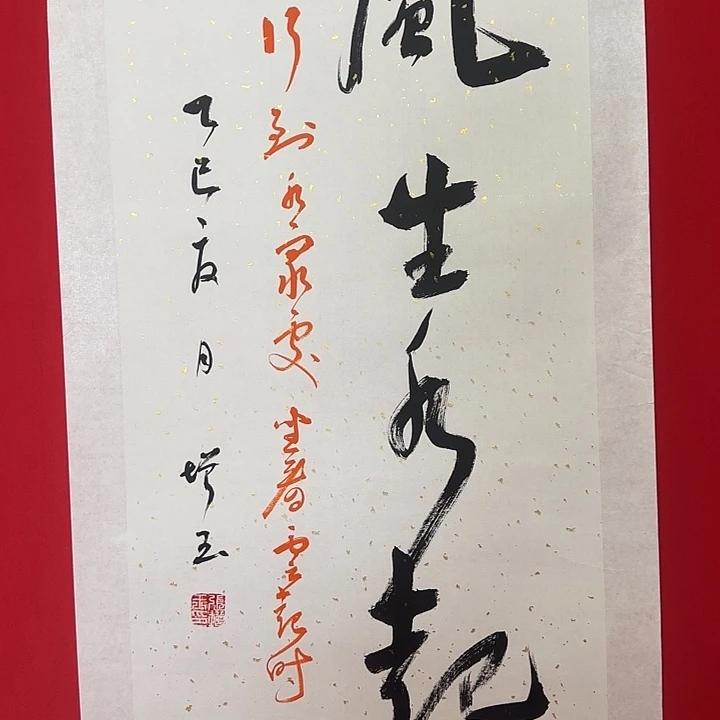 風生水起
行到水窮處坐看雲起时
乙巳夏月 增玉